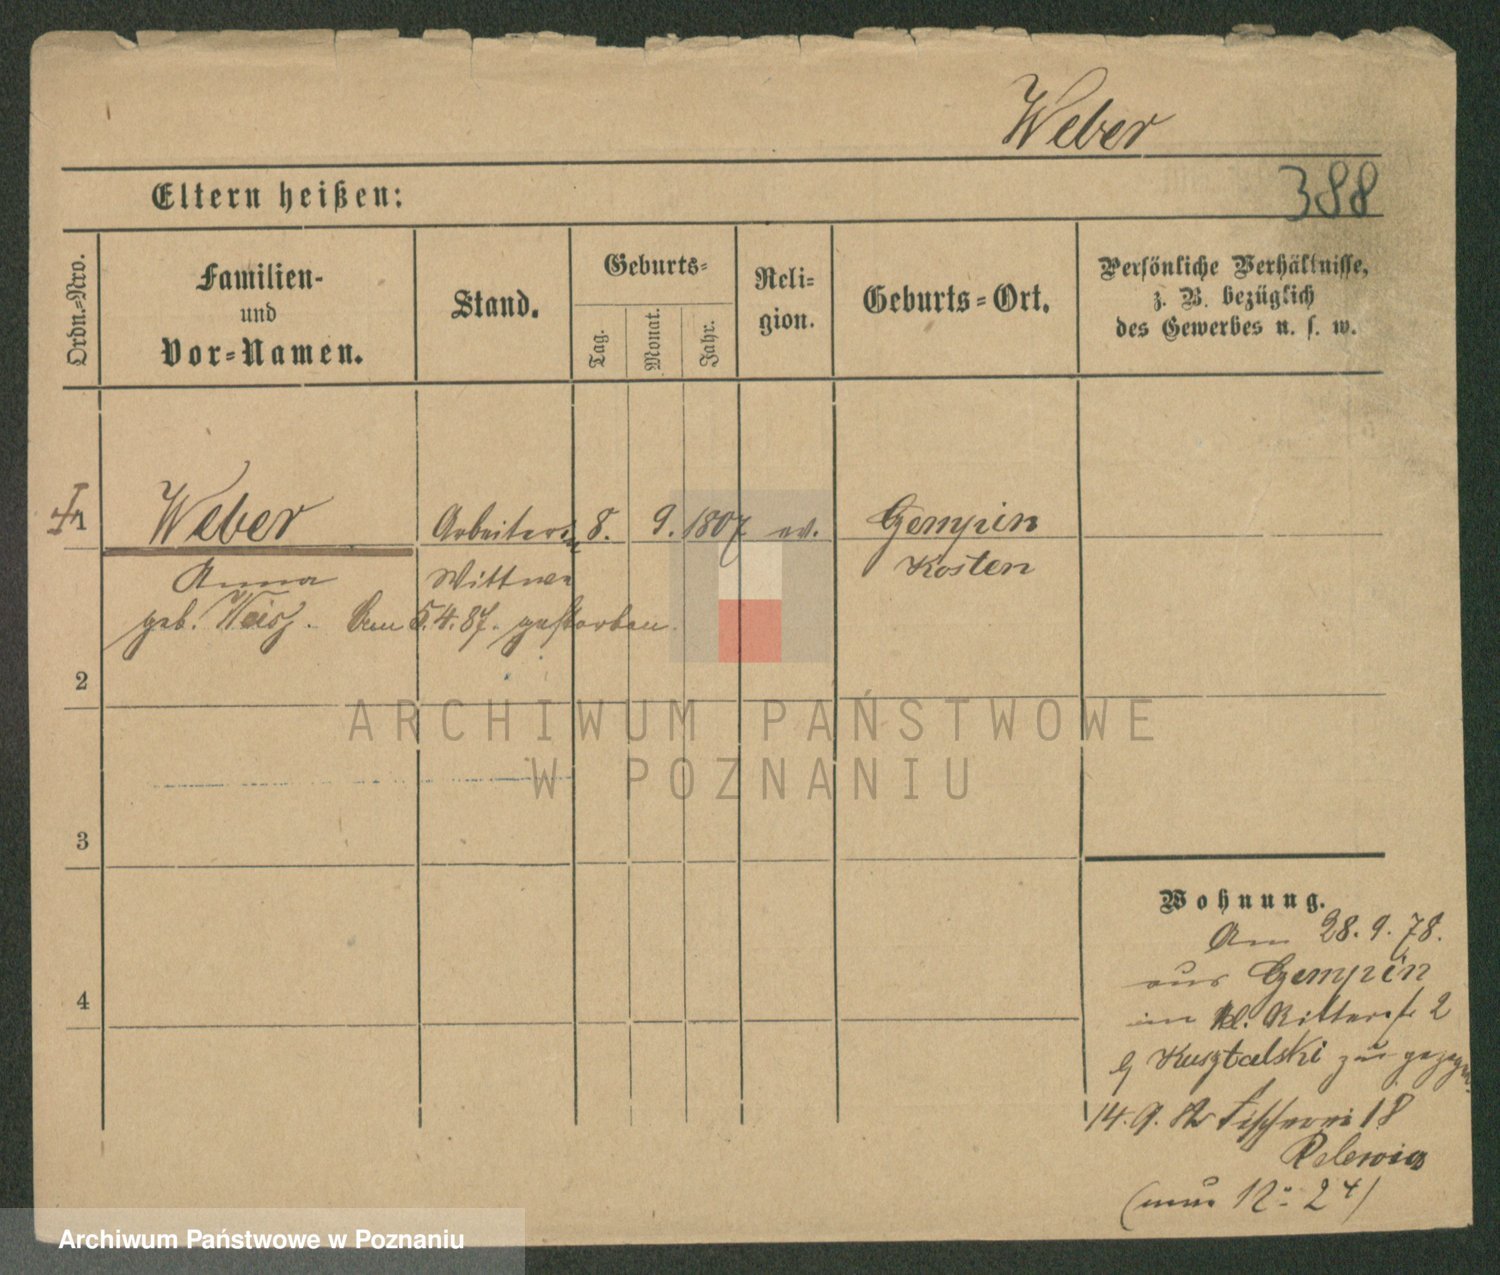 Weber
388
Eltern heißen:
Ordn.-Nro.
Familien-
und
Vor-Namen.
Stand.
Geburts-
Tag.
Monat.
Jahr.
Reli-
gion.
Geburts-Ort.
Persönliche Verhältnisse,
z. B. bezüglich
des Gewerbes u. s. w.
1 Weber Arbeiterin 8. 9. 1807 ev. Gempin
Anna Wittwe Kosten
geb. Weisz. Am 5.4.87. gestorben.
2
3
4
Wohnung.
Am 28. 9. 78.
aus Gempin
in kl. Ritterstr 2
Kusztalski zugezogen.
14. 9. Fischerei 18
(neue No 24)
ARCHIWUM PAŃSTWOWE
W POZNANIU
Archiwum Państwowe w Poznaniu